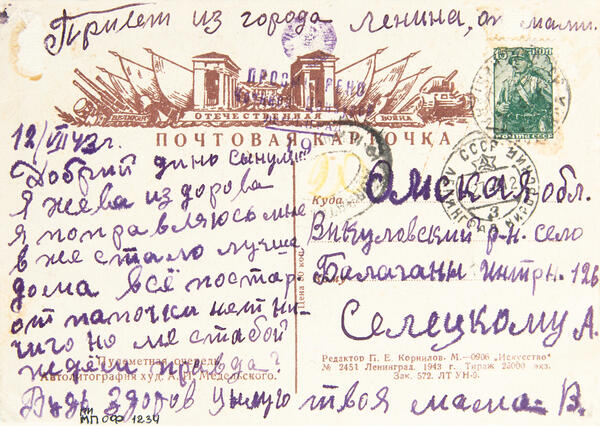 Привет из города Ленина, от мамы.
ПРОСМОТРЕНО
ВЕЛИКАЯ ОТЕЧЕСТВЕННАЯ ВОЙНА
ПОЧТОВАЯ КАРТОЧКА
ПОЧТА СССР
12/VII 43 г.
Добрий дино сынуля!!
Я жева из дорова
я поправляюсь мне
в же стало лучше
дома всё постар.
от папочки нет ни-
чиго но ме стабой
ждём правда?
Будь здоров целую твоя мама В.
Куда
Омская обл.
Викуловский р-н. село
Балаганы интрн. 126
Кому
Селецкому А.
Цена 20 коп.
Пулеметная очередь
Автолитография худ. А. И. Медельского.
Редактор П. Е. Корнилов. М.—0906 „Искусство"
№ 2451 Ленинград. 1943 г. Тираж 25000 экз.
Зак. 572. ЛТ УН-5.
МПОФ 1234